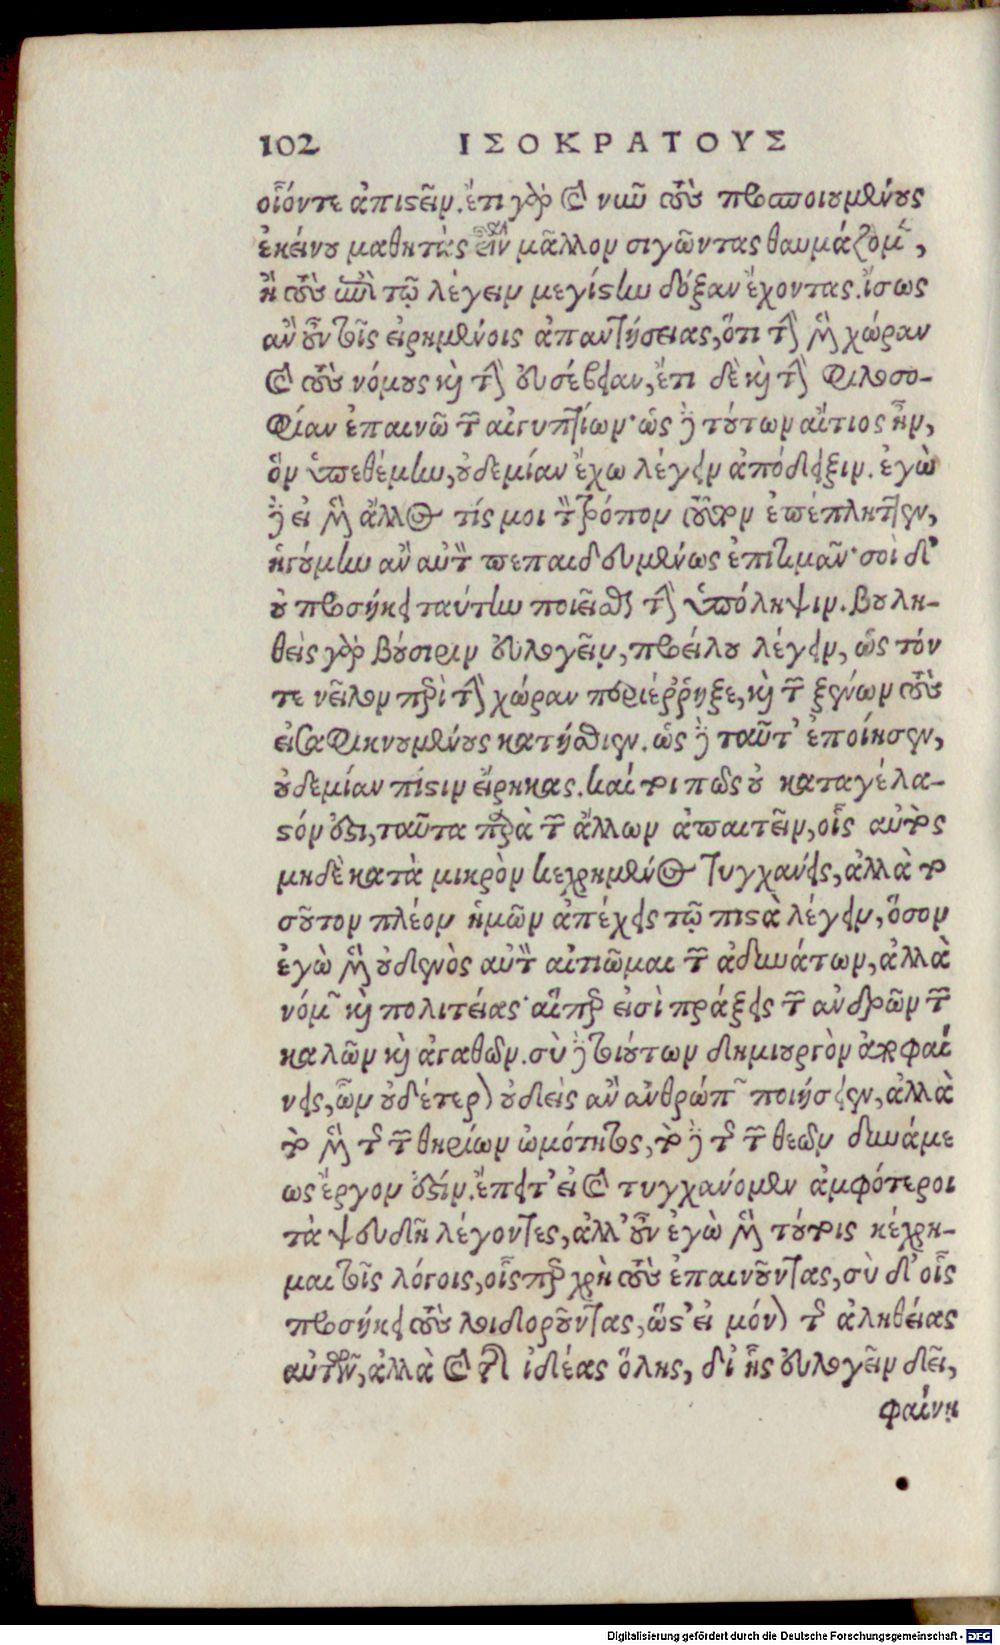 102 ΙΣΟΚΡΑΤΟΥΣ
οἷόντε ἀπιστεῖν. ἔτι γὰρ καὶ νῦν τοὺς προσποιουμένους
ἐκείνου μαθητὰς εἶναι μᾶλλον σιγῶντας θαυμάζομεν,
ἢ τοὺς ἐπὶ τῷ λέγειν μεγίστην δόξαν ἔχοντας. ἴσως
ἂν οὖν τοῖς εἰρημένοις ἀπαντήσειας, ὅτι τὴν μὲν χώραν
καὶ τοὺς νόμους καὶ τὴν εὐσέβειαν, ἔτι δὲ καὶ τὴν φιλοσο-
φίαν ἐπαινῶ τῶν αἰγυπτίων· ὡς δὲ τούτων αἴτιος ἦν,
ὃν ὑπεθέμην, οὐδεμίαν ἔχω λέγειν ἀπόδειξιν. ἐγὼ
δὲ εἰ μὲν ἄλλος τίς μοι τὸν τρόπον τοῦτον ἐπέπληττεν,
ἡγούμην ἂν αὐτὸν πεπαιδευμένως ἐπιτιμᾶν· σοὶ δ'
οὐ προσήκει ταύτην ποιεῖσθαι τὴν ὑπόληψιν. βουλη-
θεὶς γὰρ βούσιριν εὐλογεῖν, προείλου λέγειν, ὡς τόν
τε νεῖλον περὶ τὴν χώραν περιέῤῥηξε, καὶ τῶν ξένων τοὺς
εἰσαφικνουμένους κατήσθιεν. ὡς δὲ ταῦτ' ἐποίησεν,
οὐδεμίαν πίστιν εἴρηκας. καίτοι πῶς οὐ καταγέλα-
στόν ἐστι, ταῦτα παρὰ τῶν ἄλλων ἀπαιτεῖν, οἷς αὐτὸς
μηδὲ κατὰ μικρὸν κεχρημένος τυγχάνεις, ἀλλὰ το
σοῦτον πλέον ἡμῶν ἀπέχεις τῷ πιστὰ λέγειν, ὅσον
ἐγὼ μὲν οὐδενὸς αὐτὸν αἰτιῶμαι τῶν ἀδυνάτων, ἀλλὰ
νόμων καὶ πολιτείας· αἵπερ εἰσὶ πράξεις τῶν ἀνδρῶν τῶν
καλῶν καὶ ἀγαθῶν. σὺ δὲ τοιούτων δημιουργὸν ἀποφαί
νεις, ὧν οὐδέτερον οὐδεὶς ἂν ἀνθρώπων ποιήσειεν, ἀλλὰ
τὸ μὲν τῆς τῶν θηρίων ὠμότητος, τὸ δὲ τῆς τῶν θεῶν δυνάμε
ως ἔργον ἐστίν. ἔπειτ' εἰ καὶ τυγχάνομεν ἀμφότεροι
τὰ ψευδῆ λέγοντες, ἀλλ' οὖν ἐγὼ μὲν τούτοις κέχρη-
μαι τοῖς λόγοις, οἷσπερ χρὴ τοὺς ἐπαινοῦντας, σὺ δ' οἷς
προσήκει τοὺς λοιδοροῦντας, ὥστ' εἰ μόνον τῆς ἀληθείας
αὐτῶν, ἀλλὰ καὶ τῆς ἰδέας ὅλης, δι' ἧς εὐλογεῖν δεῖ,
φαίνῃ
Digitalisierung gefördert durch die Deutsche Forschungsgemeinschaft - DFG